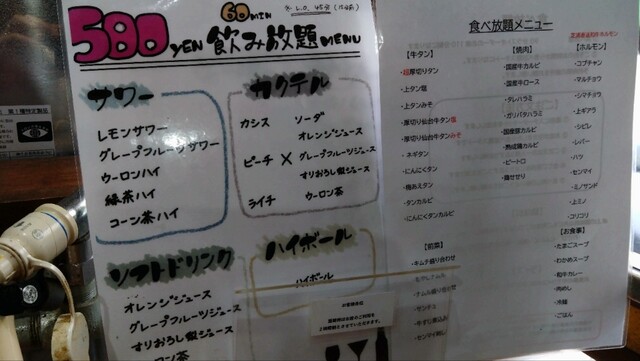 580 YEN 60MIN 飲み放題 MENU
サワー
レモンサワー
グレープフルーツサワー
ウーロンハイ
緑茶ハイ
コーン茶ハイ
カクテル
カシス
ピーチ
ライチ
×
ソーダ
オレンジジュース
グレープフルーツジュース
すりおろし梨ジュース
ウーロン茶
ソフトドリンク
オレンジジュース
グレープフルーツジュース
すりおろし梨ジュース
ハイボール
ハイボール
食べ放題メニュー
【牛タン】
・超厚切りタン
・上タン塩
・上タンみそ
・厚切り仙台牛タン塩
・厚切り仙台牛タンみそ
・ネギタン
・にんにくタン
・梅あえタン
・タンカルビ
・にんにくタンカルビ
【焼肉】
・国産牛カルビ
・国産牛ロース
・タレハラミ
・ガリバタハラミ
・国産豚カルビ
・熟成鶏カルビ
・ピートロ
・鶏せせり
【ホルモン】
・コプチャン
・マルチョウ
・シマチョウ
・上ギアラ
・シビレ
・レバー
・ハツ
・センマイ
・ミノサンド
・上ミノ
・コリコリ
【前菜】
・キムチ盛り合わせ
・ナムル盛り合わせ
・サンチュ
・牛すじ煮込み
・センマイ刺し
【お食事】
・たまごスープ
・わかめスープ
・和牛カレー
・肉めし
・冷麺
・ごはん